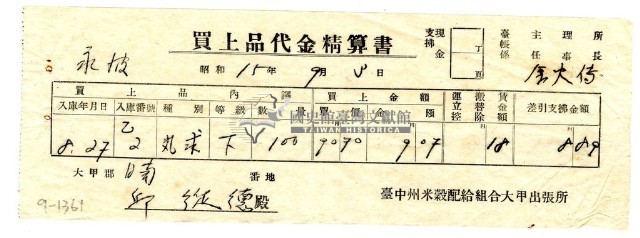 買上品代金精算書
現金
支拂
丁
頁
臺帳係
主任
理事
所長
昭和 15年 9月 8日
買上品內譯
買上金額
運搬賃
立替金
控除額
差引支拂金額
入庫年月日
入庫番號
種別
等級
數量
買價
金額
8.27
乙2
下
100
9070
907
18
889
大甲郡 日南 番地
邱 德殿
臺中州米穀配給組合大甲出張所
9-1361
國史館臺灣文獻館
TAIWAN HISTORICA